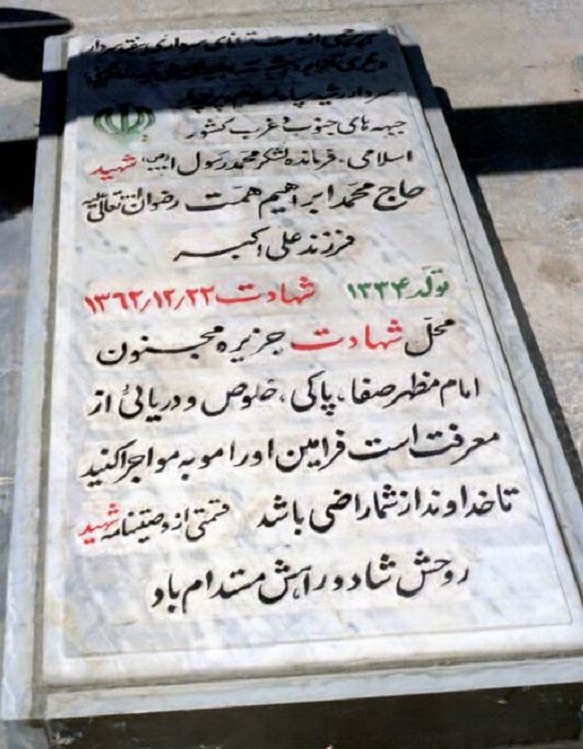 سردار رشید سپاه اسلام
جبهه های جنوب و غرب کشور
اسلامی، فرمانده لشکر محمد رسول الله (ص)، شهید
حاج محمد ابراهیم همت رضوان الله تعالی علیه
فرزند علی اکبر
تولد ۱۳۳۴ شهادت ۱۳۶۲/۱۲/۲۲
محل شهادت جزیره مجنون
امام مظهر صفا، پاکی، خلوص و دریائی از
معرفت است فرامین او را مو به مو اجرا کنید
تا خداوند از شما راضی باشد قسمتی از وصیتنامه شهید
روحش شاد و راهش مستدام باد